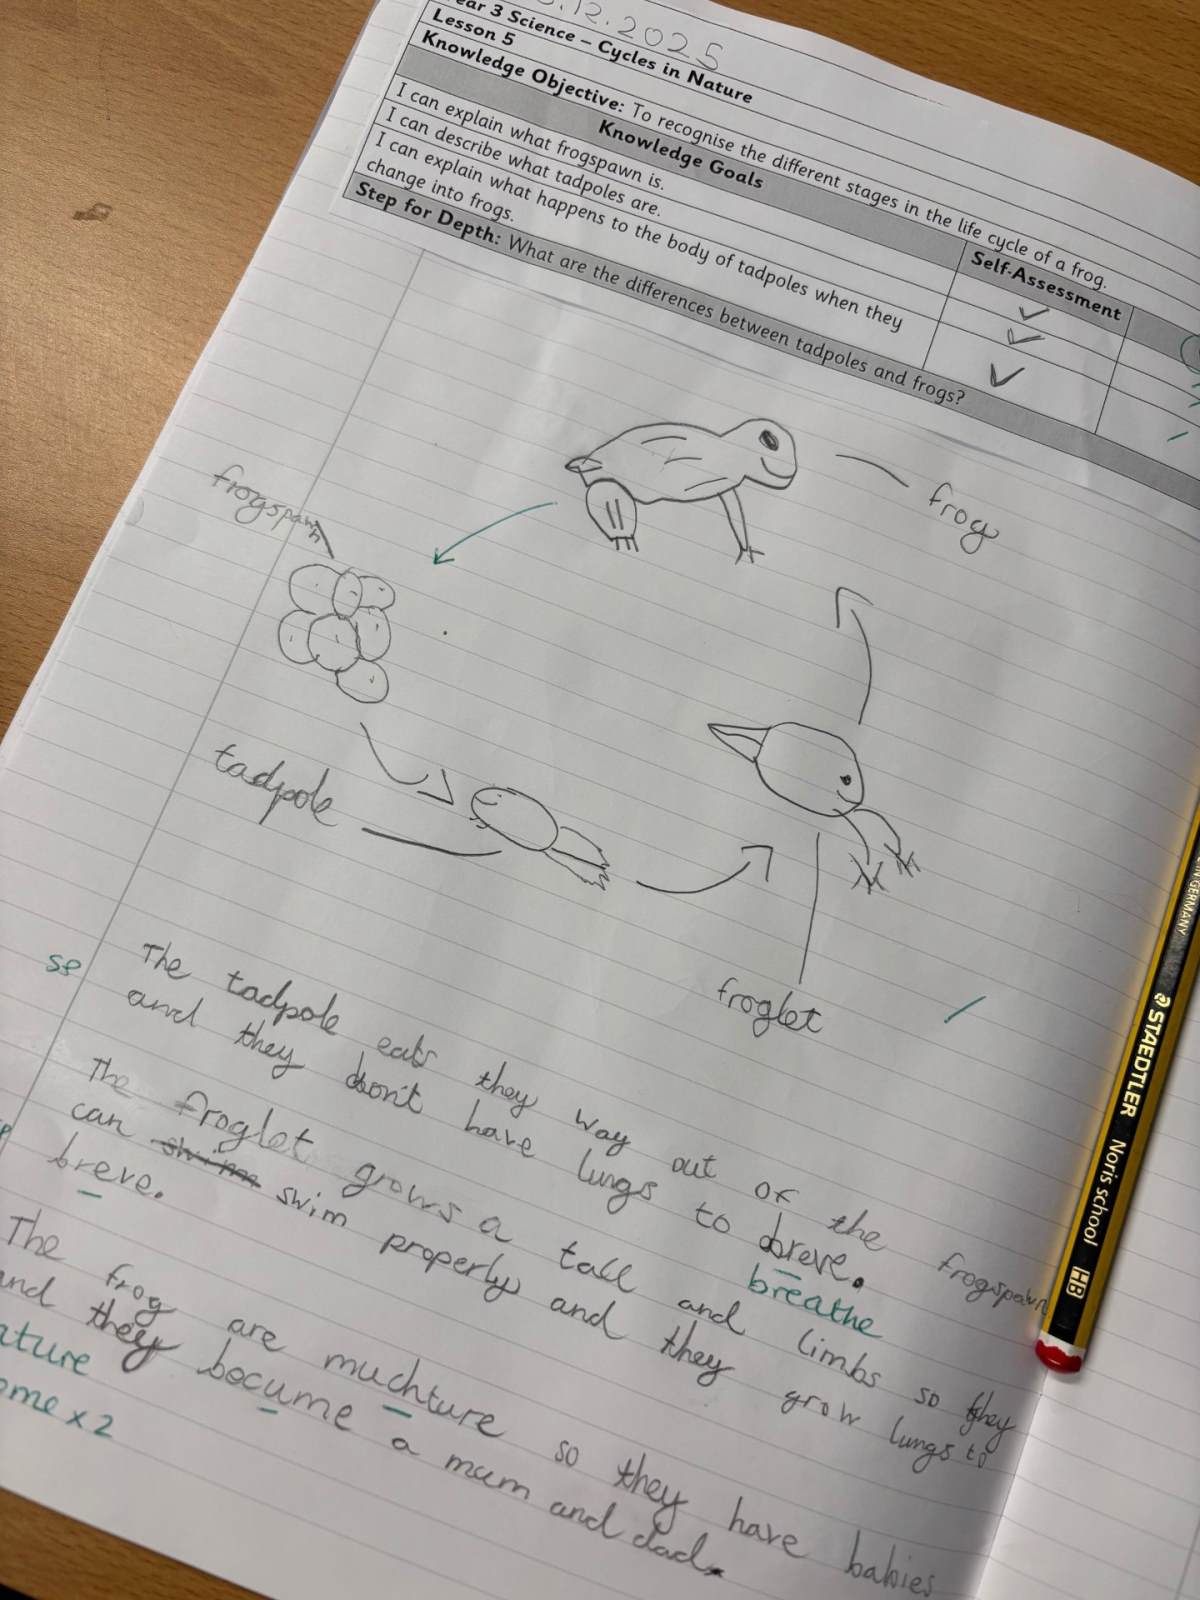 .12.2025
ear 3 Science – Cycles in Nature
Lesson 5
Knowledge Objective: To recognise the different stages in the life cycle of a frog.
Knowledge Goals
Self-Assessment
I can explain what frogspawn is.
I can describe what tadpoles are.
I can explain what happens to the body of tadpoles when they
change into frogs.
Step for Depth: What are the differences between tadpoles and frogs?
frog
frogspawn
tadpole
froglet
sp
The tadpole eats they way out of the frogspawn
and they don't have lungs to breve.
breathe
The froglet grows a tall and limbs so they
can swim swim properly and they grow lungs to
breve.
The frog are muchture so they have babies
and they becume a mum and dad.
ature
ome x 2
IN GERMANY
STAEDTLER Noris school HB